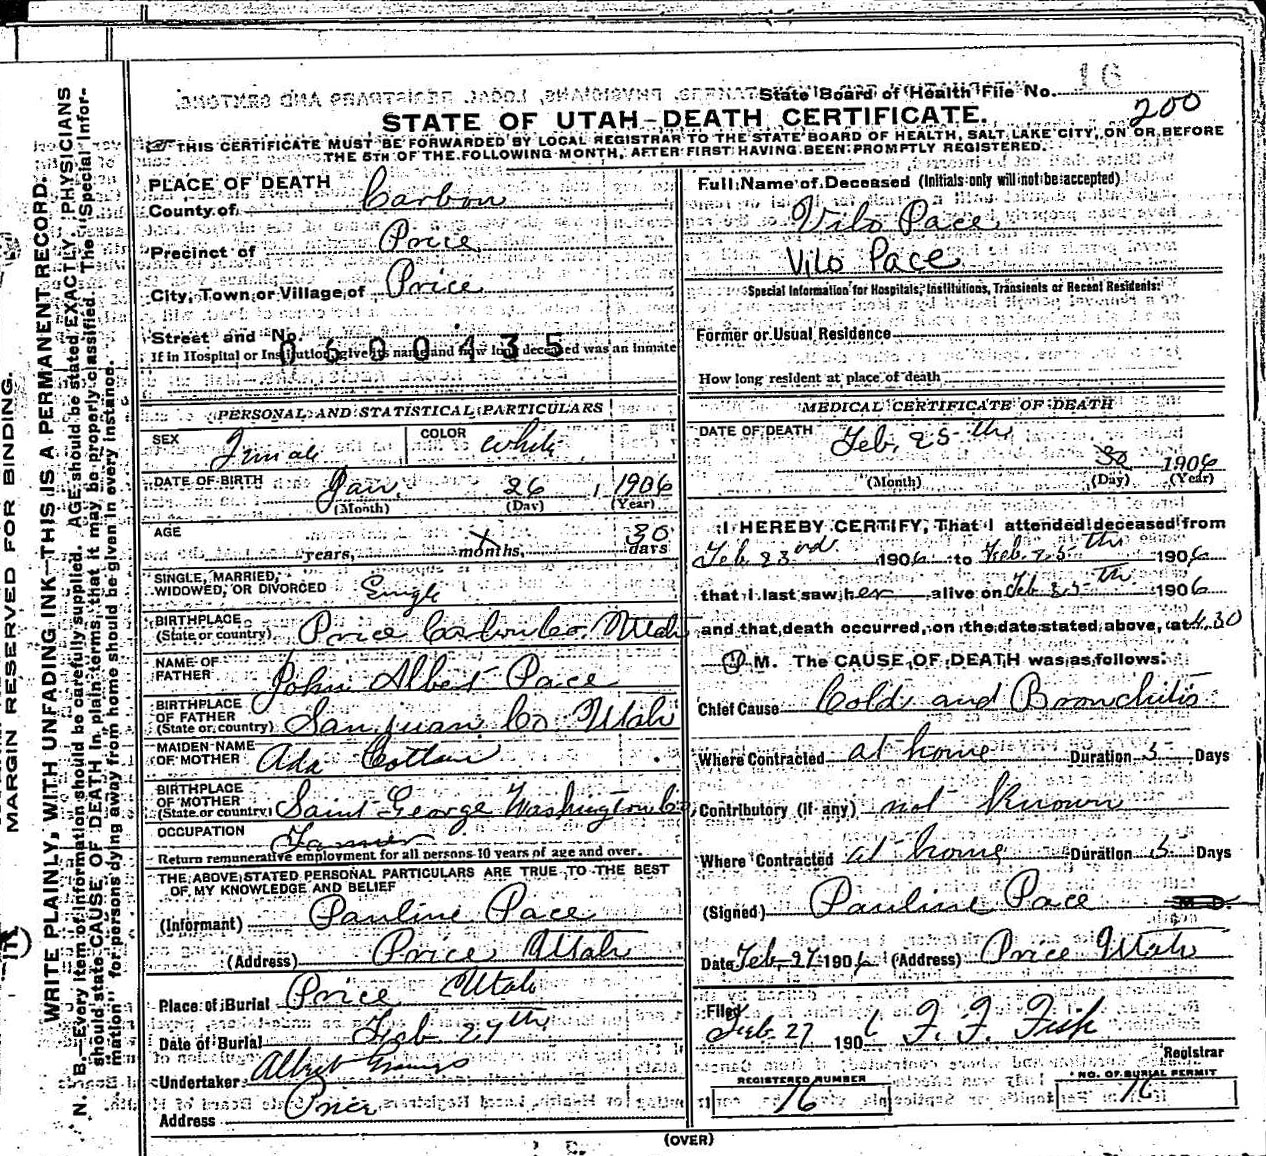 16
State Board of Health File No.
200
STATE OF UTAH—DEATH CERTIFICATE.
THIS CERTIFICATE MUST BE FORWARDED BY LOCAL REGISTRAR TO THE STATE BOARD OF HEALTH, SALT LAKE CITY, ON OR BEFORE
THE 5TH OF THE FOLLOWING MONTH, AFTER FIRST HAVING BEEN PROMPTLY REGISTERED.
MARGIN RESERVED FOR BINDING.
WRITE PLAINLY, WITH UNFADING INK—THIS IS A PERMANENT RECORD.
N. B.—Every item of information should be carefully supplied. AGE should be stated EXACTLY. PHYSICIANS
should state CAUSE OF DEATH in plain terms, that it may be properly classified. The "Special Infor-
mation" for persons dying away from home should be given in every instance.
PLACE OF DEATH
County of Carbon
Precinct of Price
City, Town or Village of Price
Street and No.
0600435
If in Hospital or Institution, give its name and how long deceased was an inmate
PERSONAL AND STATISTICAL PARTICULARS
SEX Female COLOR White
DATE OF BIRTH Jan. 26, 1906
(Month) (Day) (Year)
AGE years, x months, 30 days
SINGLE, MARRIED, WIDOWED, OR DIVORCED Single
BIRTHPLACE (State or country) Price Carbon Co. Utah
NAME OF FATHER John Albert Pace
BIRTHPLACE OF FATHER (State or country) San Juan Co. Utah
MAIDEN NAME OF MOTHER Ada
BIRTHPLACE OF MOTHER (State or country) Saint George Washington Co,
OCCUPATION Farmer
Return remunerative employment for all persons 10 years of age and over.
THE ABOVE STATED PERSONAL PARTICULARS ARE TRUE TO THE BEST
OF MY KNOWLEDGE AND BELIEF
(Informant) Pauline Pace
(Address) Price Utah
Place of Burial Price Utah
Date of Burial Feb 27th
Undertaker Albert
Address Price
Full Name of Deceased (Initials only will not be accepted)
Vilo Pace
Vilo Pace
Special Information for Hospitals, Institutions, Transients or Recent Residents:
Former or Usual Residence
How long resident at place of death
MEDICAL CERTIFICATE OF DEATH
DATE OF DEATH Feb. 25th
30 1906
(Month) (Day) (Year)
I HEREBY CERTIFY, That I attended deceased from
Feb 23rd 1906 to Feb. 25th 1906
that I last saw her alive on Feb 25th 1906
and that death occurred, on the date stated above, at 4.30
M. The CAUSE OF DEATH was as follows:
Chief Cause Cold and Bronchitis
Where Contracted at home Duration 5 Days
Contributory (if any) not known
Where Contracted at home Duration 5 Days
(Signed) Pauline Pace M. D.
Date Feb. 27 1906 (Address) Price Utah
Filed Feb. 27 1906 F. F. Fisk
Registrar
REGISTERED NUMBER 16
NO. OF BURIAL PERMIT 16
(OVER)